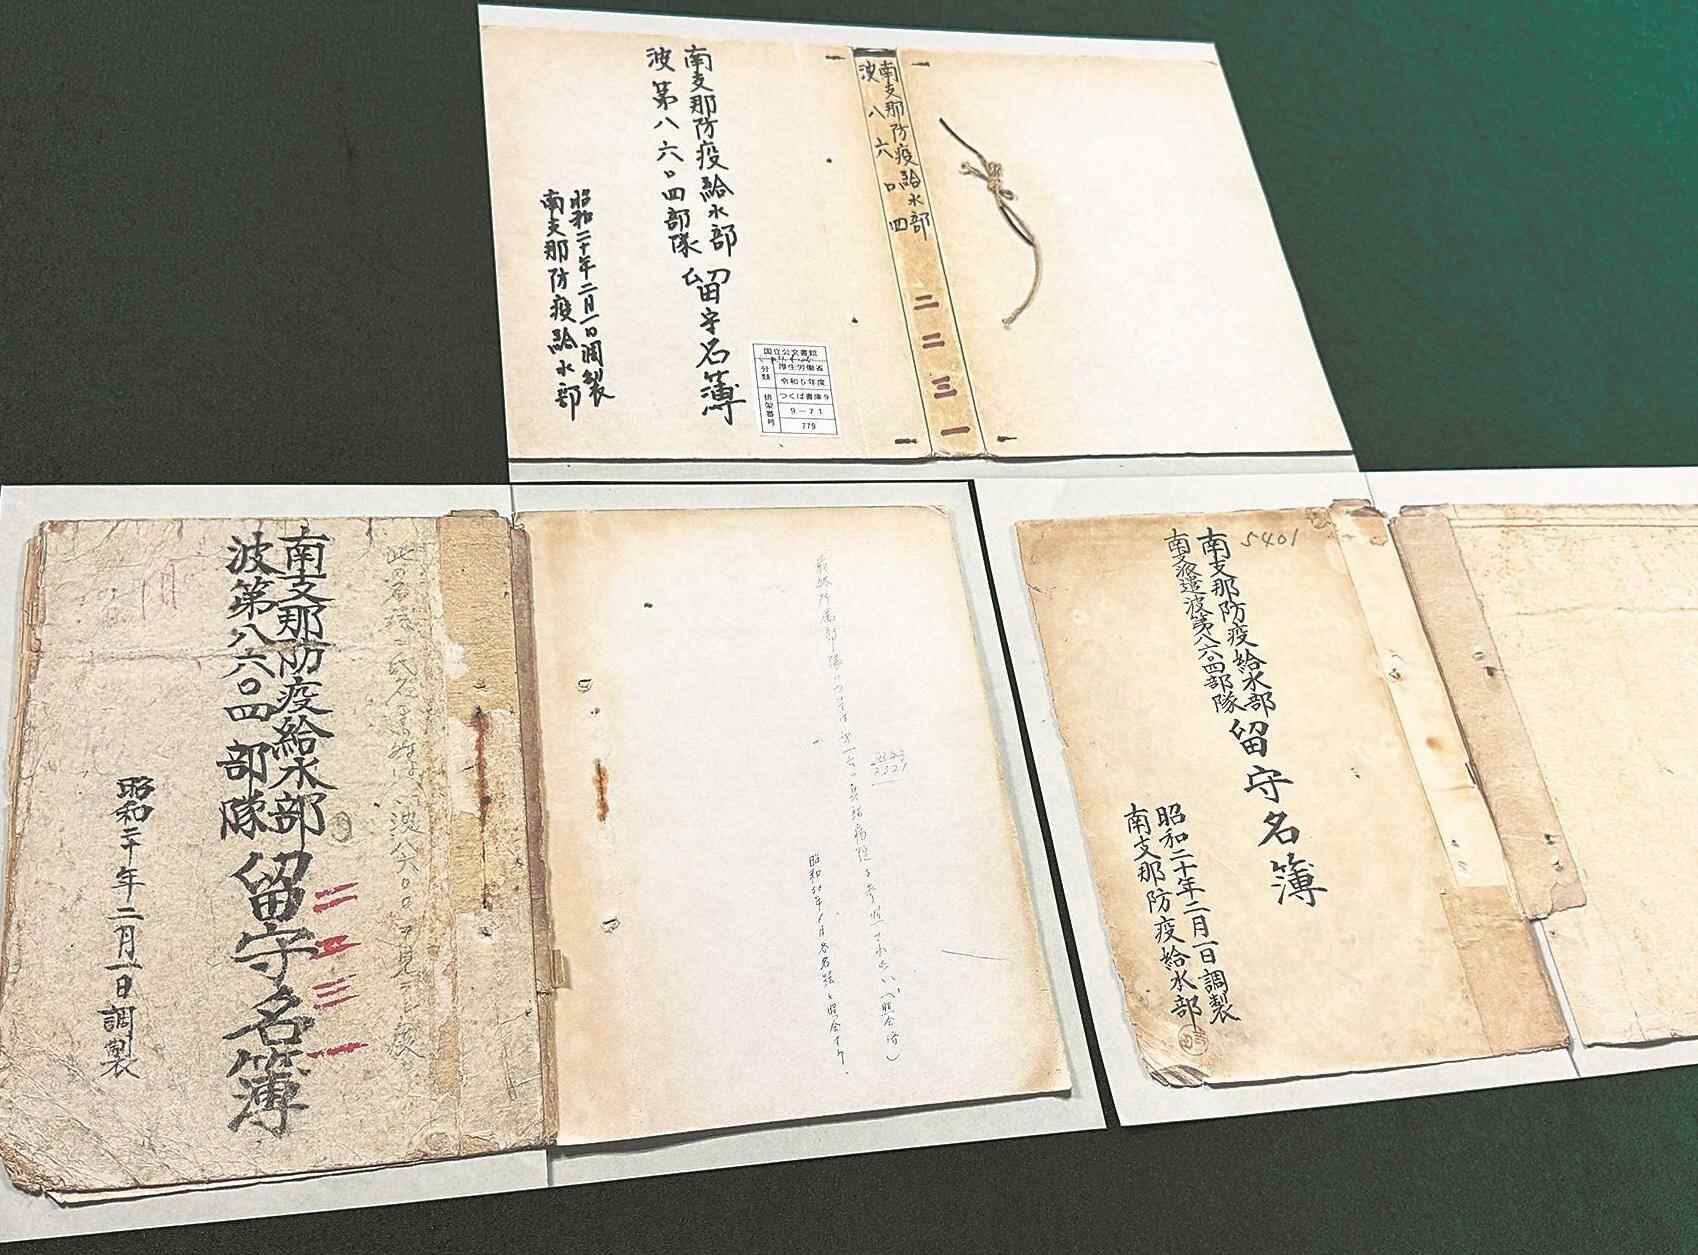 南支那防疫給水部
波第八六〇四部隊
留守名簿
昭和二十年二月一日調製
南支那防疫給水部
国立公文書館
分類
厚生労働省
令和5年度
排架番号
つくば書庫9
9-71
779
南支那防疫給水部
波八六〇四
二二三一
南支那防疫給水部
波第八六〇四部隊
留守名簿
二二三一
昭和二十年二月一日調製
5401
南支那防疫給水部
南支派遣波第八六〇四部隊
留守名簿
昭和二十年二月一日調製
南支那防疫給水部